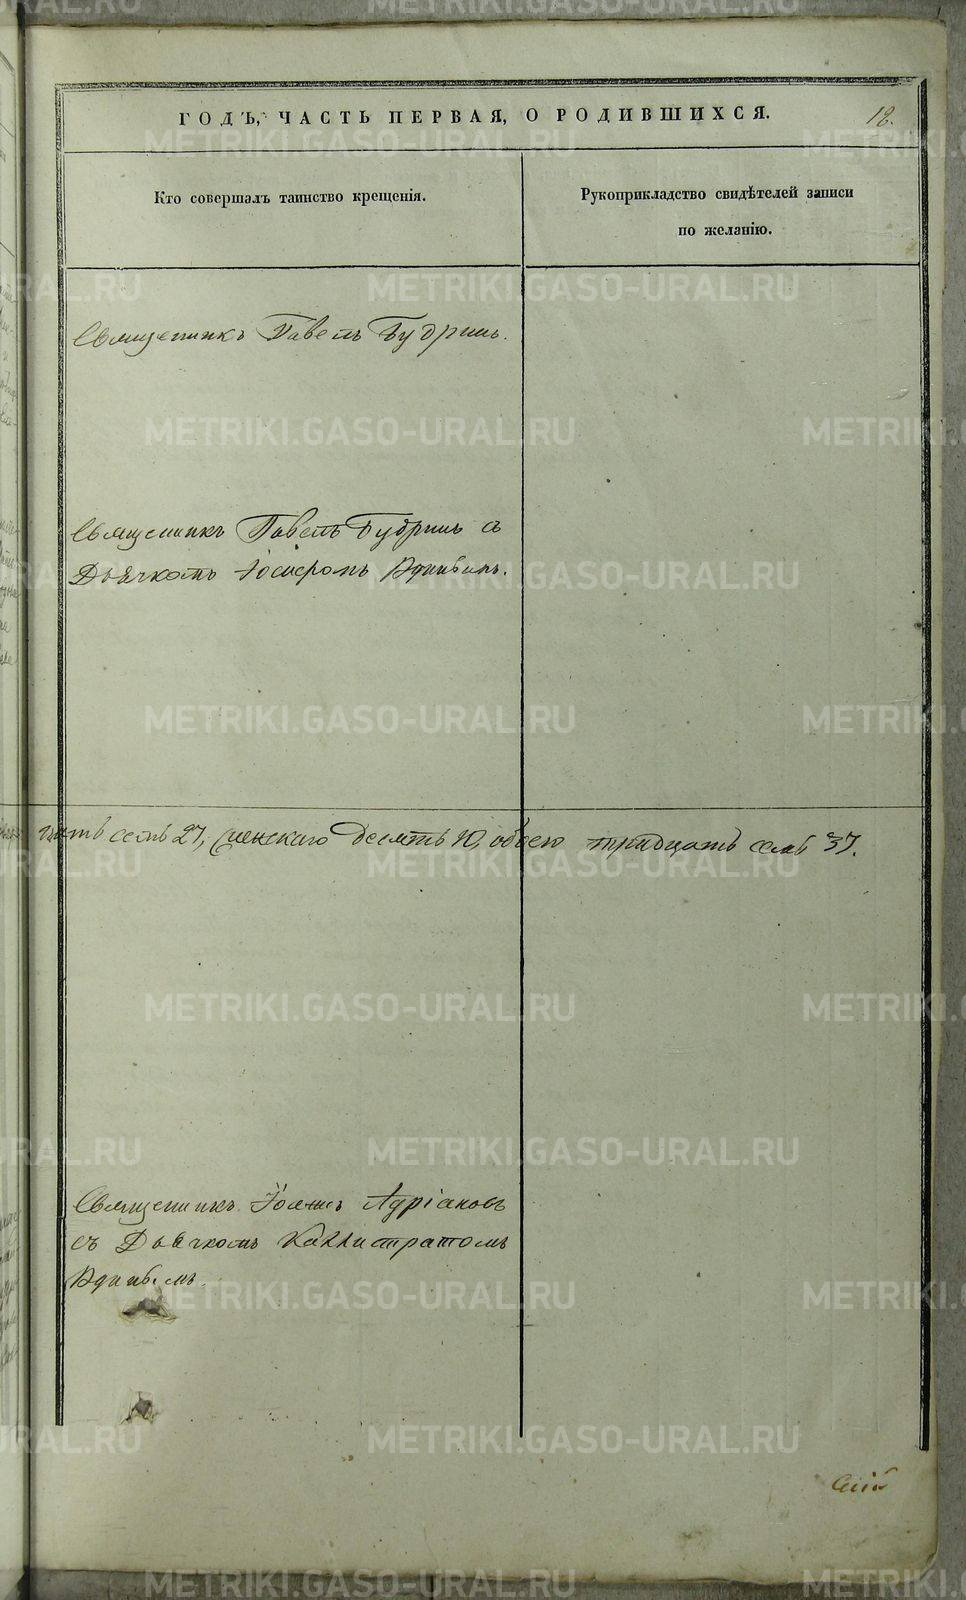 ГОДЪ, ЧАСТЬ ПЕРВАЯ, О РОДИВШИХСЯ.
18.
Кто совершалъ таинство крещенія.
Рукоприкладство свидѣтелей записи
по желанію.
Священникъ Павелъ Будринъ.
Священникъ Павелъ Будринъ с
Дьячкомъ Іосифомъ
цать семь 27, женскаго десять 10, обоего тридцать семь 37.
Священникъ Іоаннъ Адріановъ
съ Дьячкомъ Каллистратомъ
METRIKI.GASO-URAL.RU